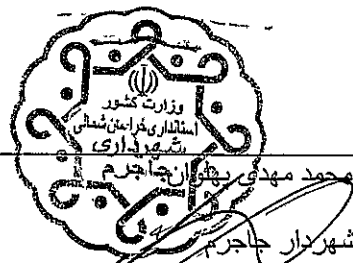 وزارت کشور
استانداری خراسان شمالی
شهرداری
جاجرم
محمد مهدی پهلوان
شهردار جاجرم